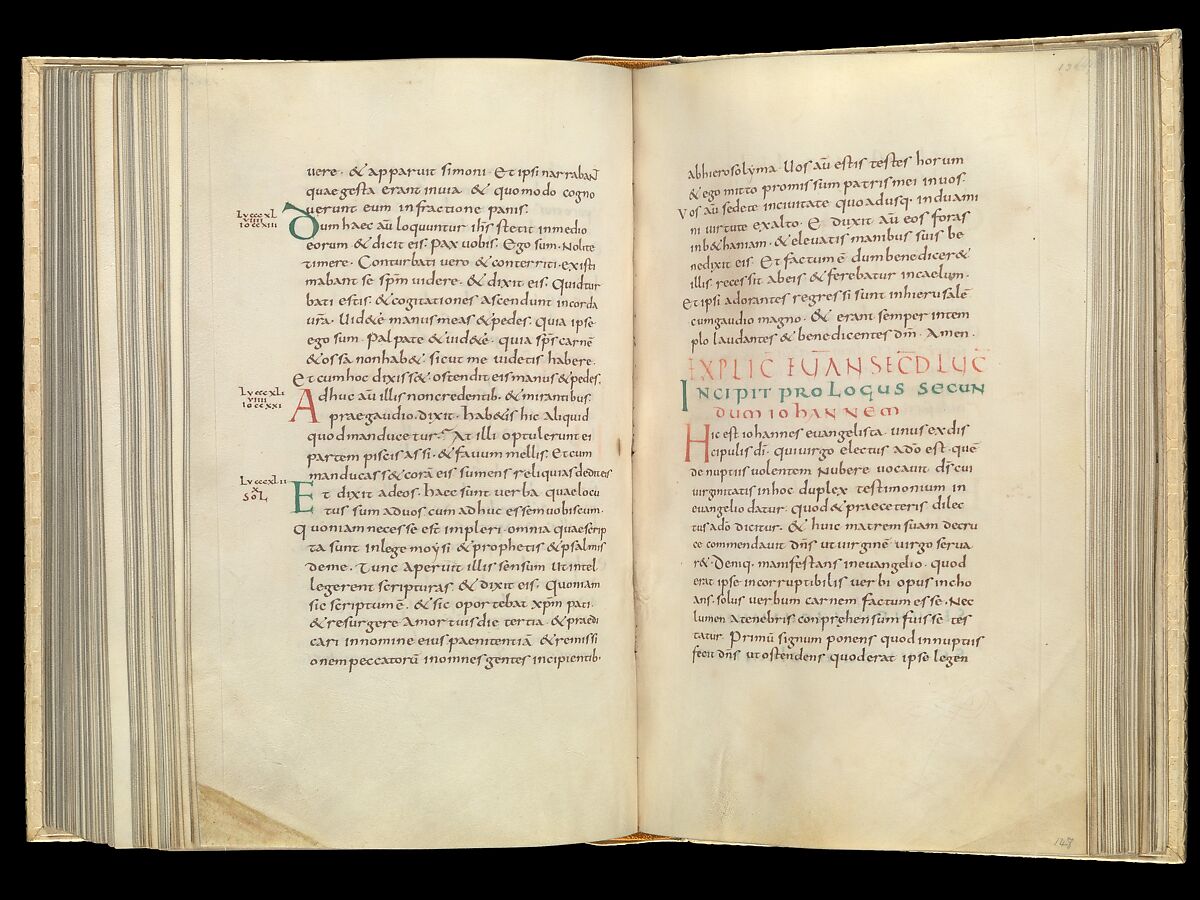 uere · & apparuit simoni · Et ipsi narraban̄
quae gesta erant inuia · & quomodo cogno
uerunt eum infractione panis ·
Lu cccxl
uiiii
Io ccxiii
Dum haec aū loquuntur ih̄s stetit inmedio
eorum & dicit eis · Pax uobis · Ego sum · Nolite
timere · Conturbati uero & conterriti · existi
mabant se sp̄m uidere · & dixit eis · Quid tur
bati estis · & cogitationes ascendunt incorda
ur̄a · Uid&e manus meas & pedes · Quia ipse
ego sum · Palpate & uid&e · quia sp̄s carnē
& ossa nonhab& · sicut me uidetis habere ·
Et cumhoc dixiss& · ostendit eis manus & pedes ·
Lu cccxli
uiiii
Io ccxxi
Adhuc aū illis noncredentib · & mirantibus ·
praegaudio · dixit · Hab&is hic Aliquid
quodmanducetur · At illi optulerunt ei
partem piscis assi · & fauum mellis · Et cum
manducass& corā eis sumens reliquias dedit eis
Lu cccxlii
x
SOL
Et dixit adeos · haec sunt uerba quae locu
tus sum aduos cum adhuc essem uobiscum ·
Quoniam necesse est impleri omnia quae scrip
ta sunt inlege moysi · & prophetis & psalmis
deme · Tunc aperuit illis sensum ut intel
legerent scripturas · & dixit eis · Quoniam
sic scriptum ē · & sic oportebat xp̄m pati ·
& resurgere Amortuis die tertia · & praedi
cari innomine eius paenitentiā · & remissi
onem peccatorū inomnes gentes incipientib ·
abhierosolyma · Uos aū estis testes horum
& ego mitto promissum patris mei inuos ·
Uos aū sedete inciuitate quoadusq · induami
ni uirtute exalto · Eduxit aū eos foras
inb&haniam · & eleuatis manibus suis be
nedixit eis · Et factum ē dum benedicer&
illis · recessit abeis & ferebatur incaelum ·
Et ipsi adorantes regressi sunt inhierusalē
cumgaudio magno · & erant semper intem
plo laudantes & benedicentes dm̄ · Amen ·
EXPLIC̄ EUĀN SEC̄D LUC̄
INCIPIT PROLOGUS SECUN
DUM IOHANNEM
Hic est iohannes euangelista · unus ex dis
cipulis dī · qui uirgo electus a dō est · quē
de nuptiis uolentem nubere uocauit dn̄s cui
uirginitatis inhoc duplex testimonium in
euangelio datur · quod & praeceteris dilec
tus a dō dicitur · & huic matrem suam decru
ce commendauit dn̄s ut uirginē uirgo serua
r& · Deniq · manifestans ineuangelio · quod
erat ipse incorruptibilis uerbi opus incho
ans · solus uerbum carnem factum esse · Nec
lumen atenebris conprehensum fuisse tes
tatur · Primū signum ponens quod innuptiis
fecit dn̄s ut ostendens quod erat ipse legen
148